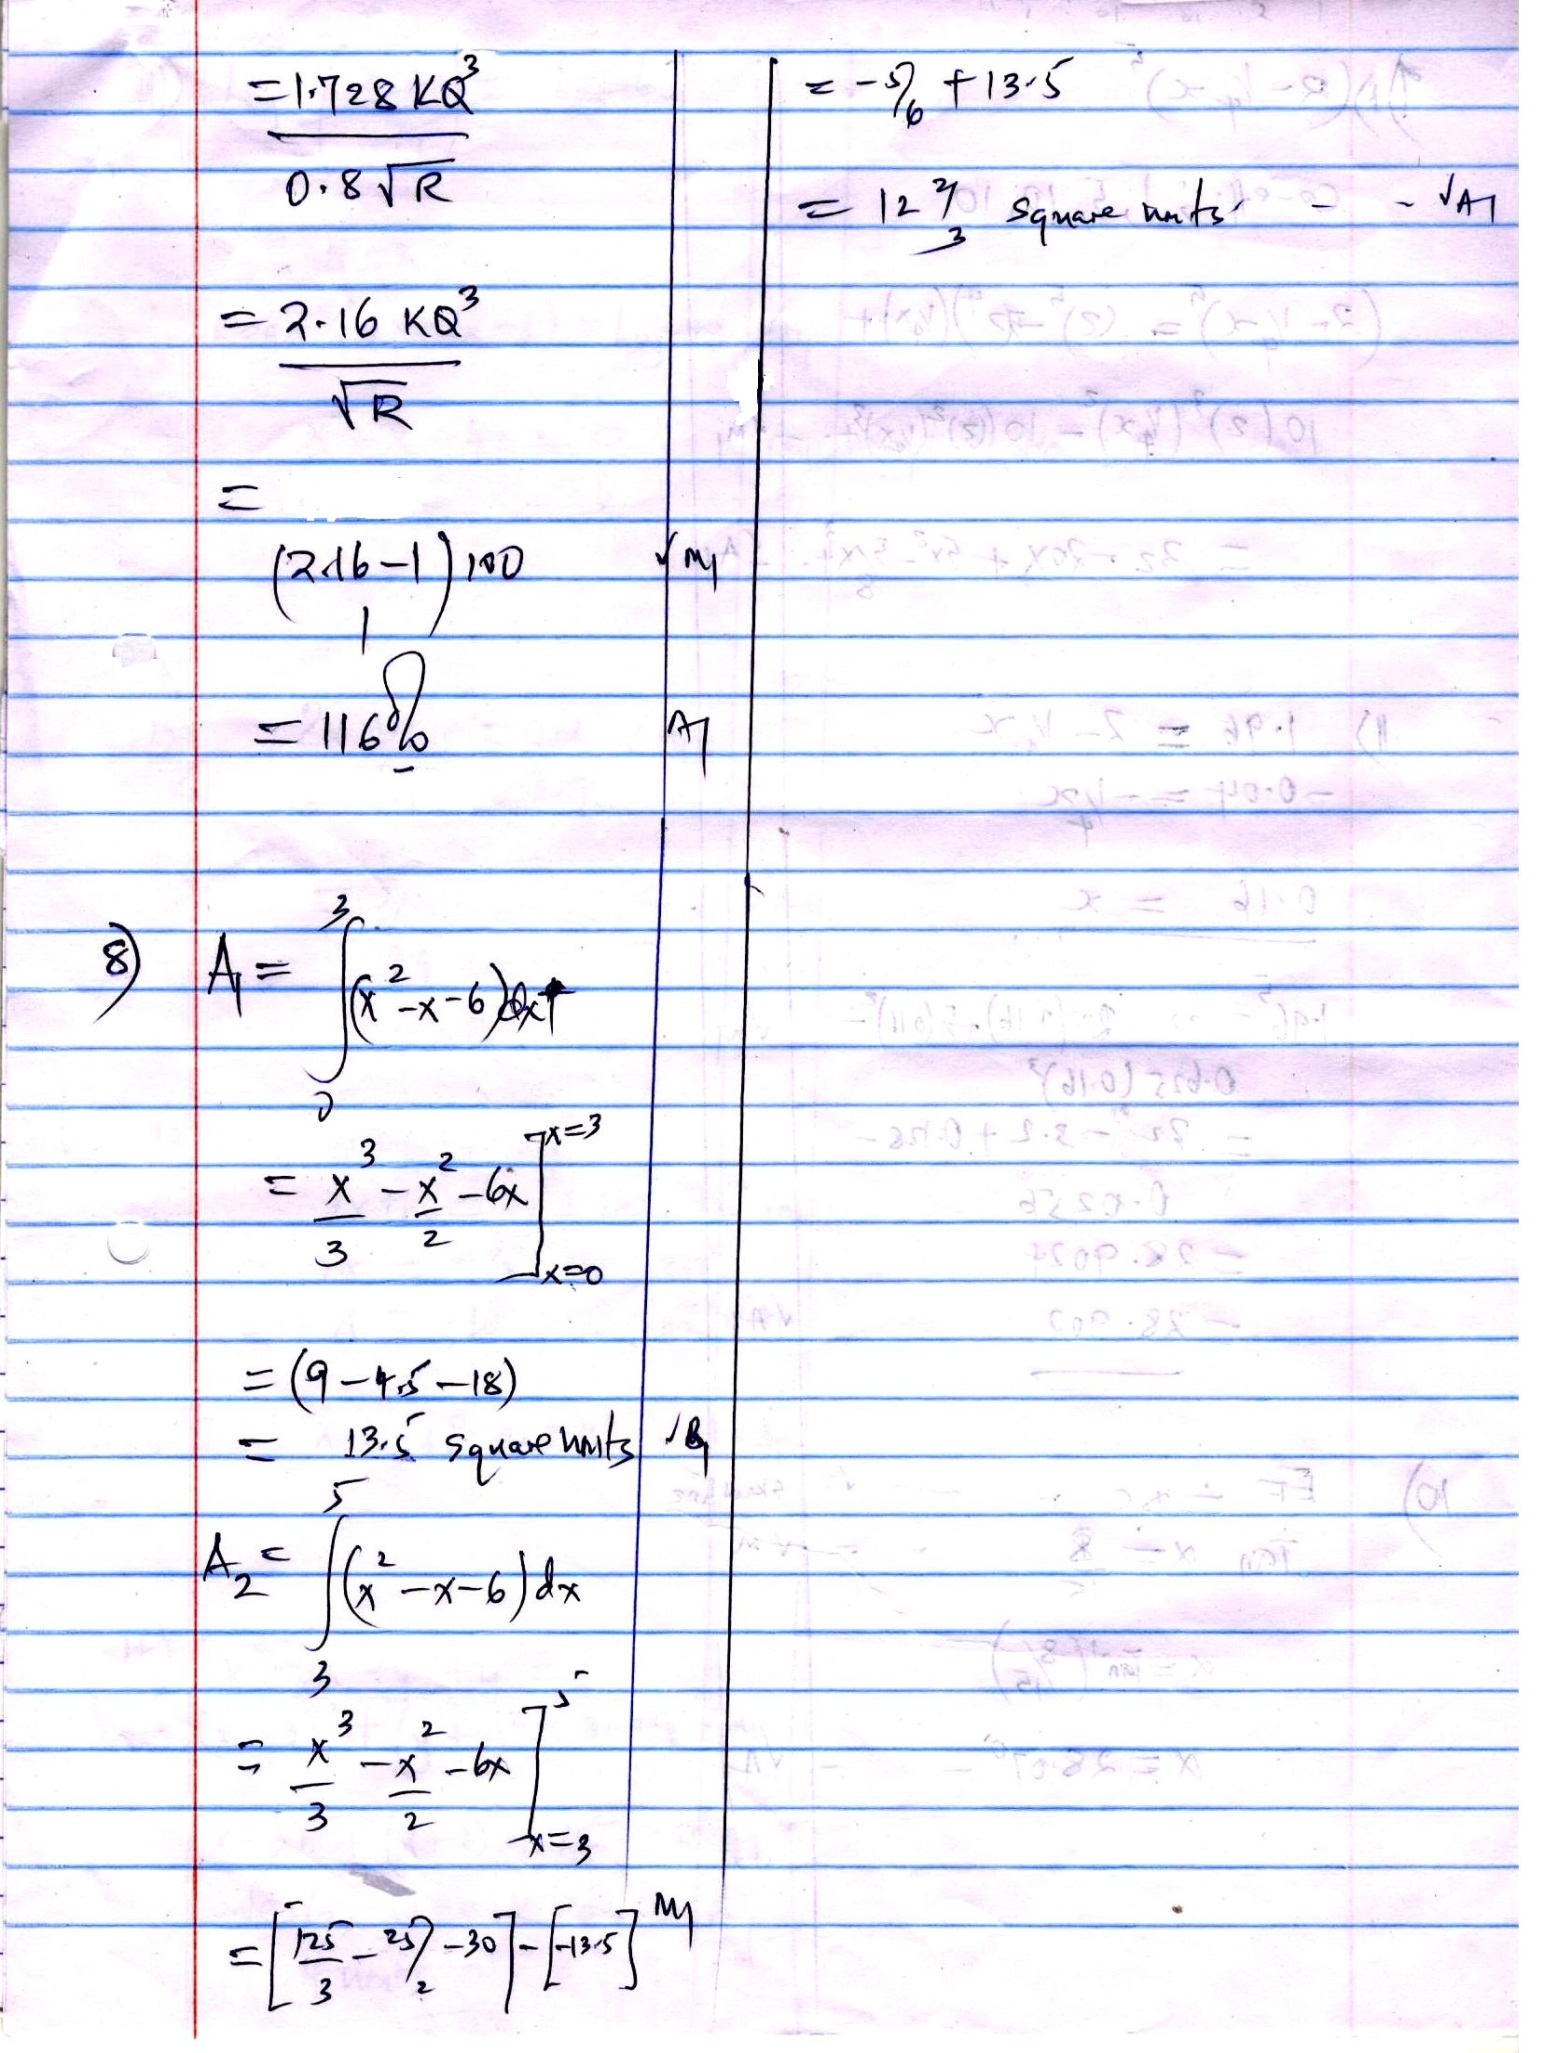 = 1.728 KQ³
0.8 √R
= 2.16 KQ³
√R
=
(2.16 – 1) 100 √ M1
1
= 116% A1
8) A1 = ∫₀³ (x² – x – 6) dx
= x³/3 – x²/2 – 6x ]x=3 x=0
= (9 – 4.5 – 18)
= 13.5 square units √ B1
A2 = ∫₃⁵ (x² – x – 6) dx
= x³/3 – x²/2 – 6x ]5 x=3
= [125/3 – 25/2 – 30] – [–13.5] M1
= – 5/6 + 13.5
= 12 2/3 square units - - √A1